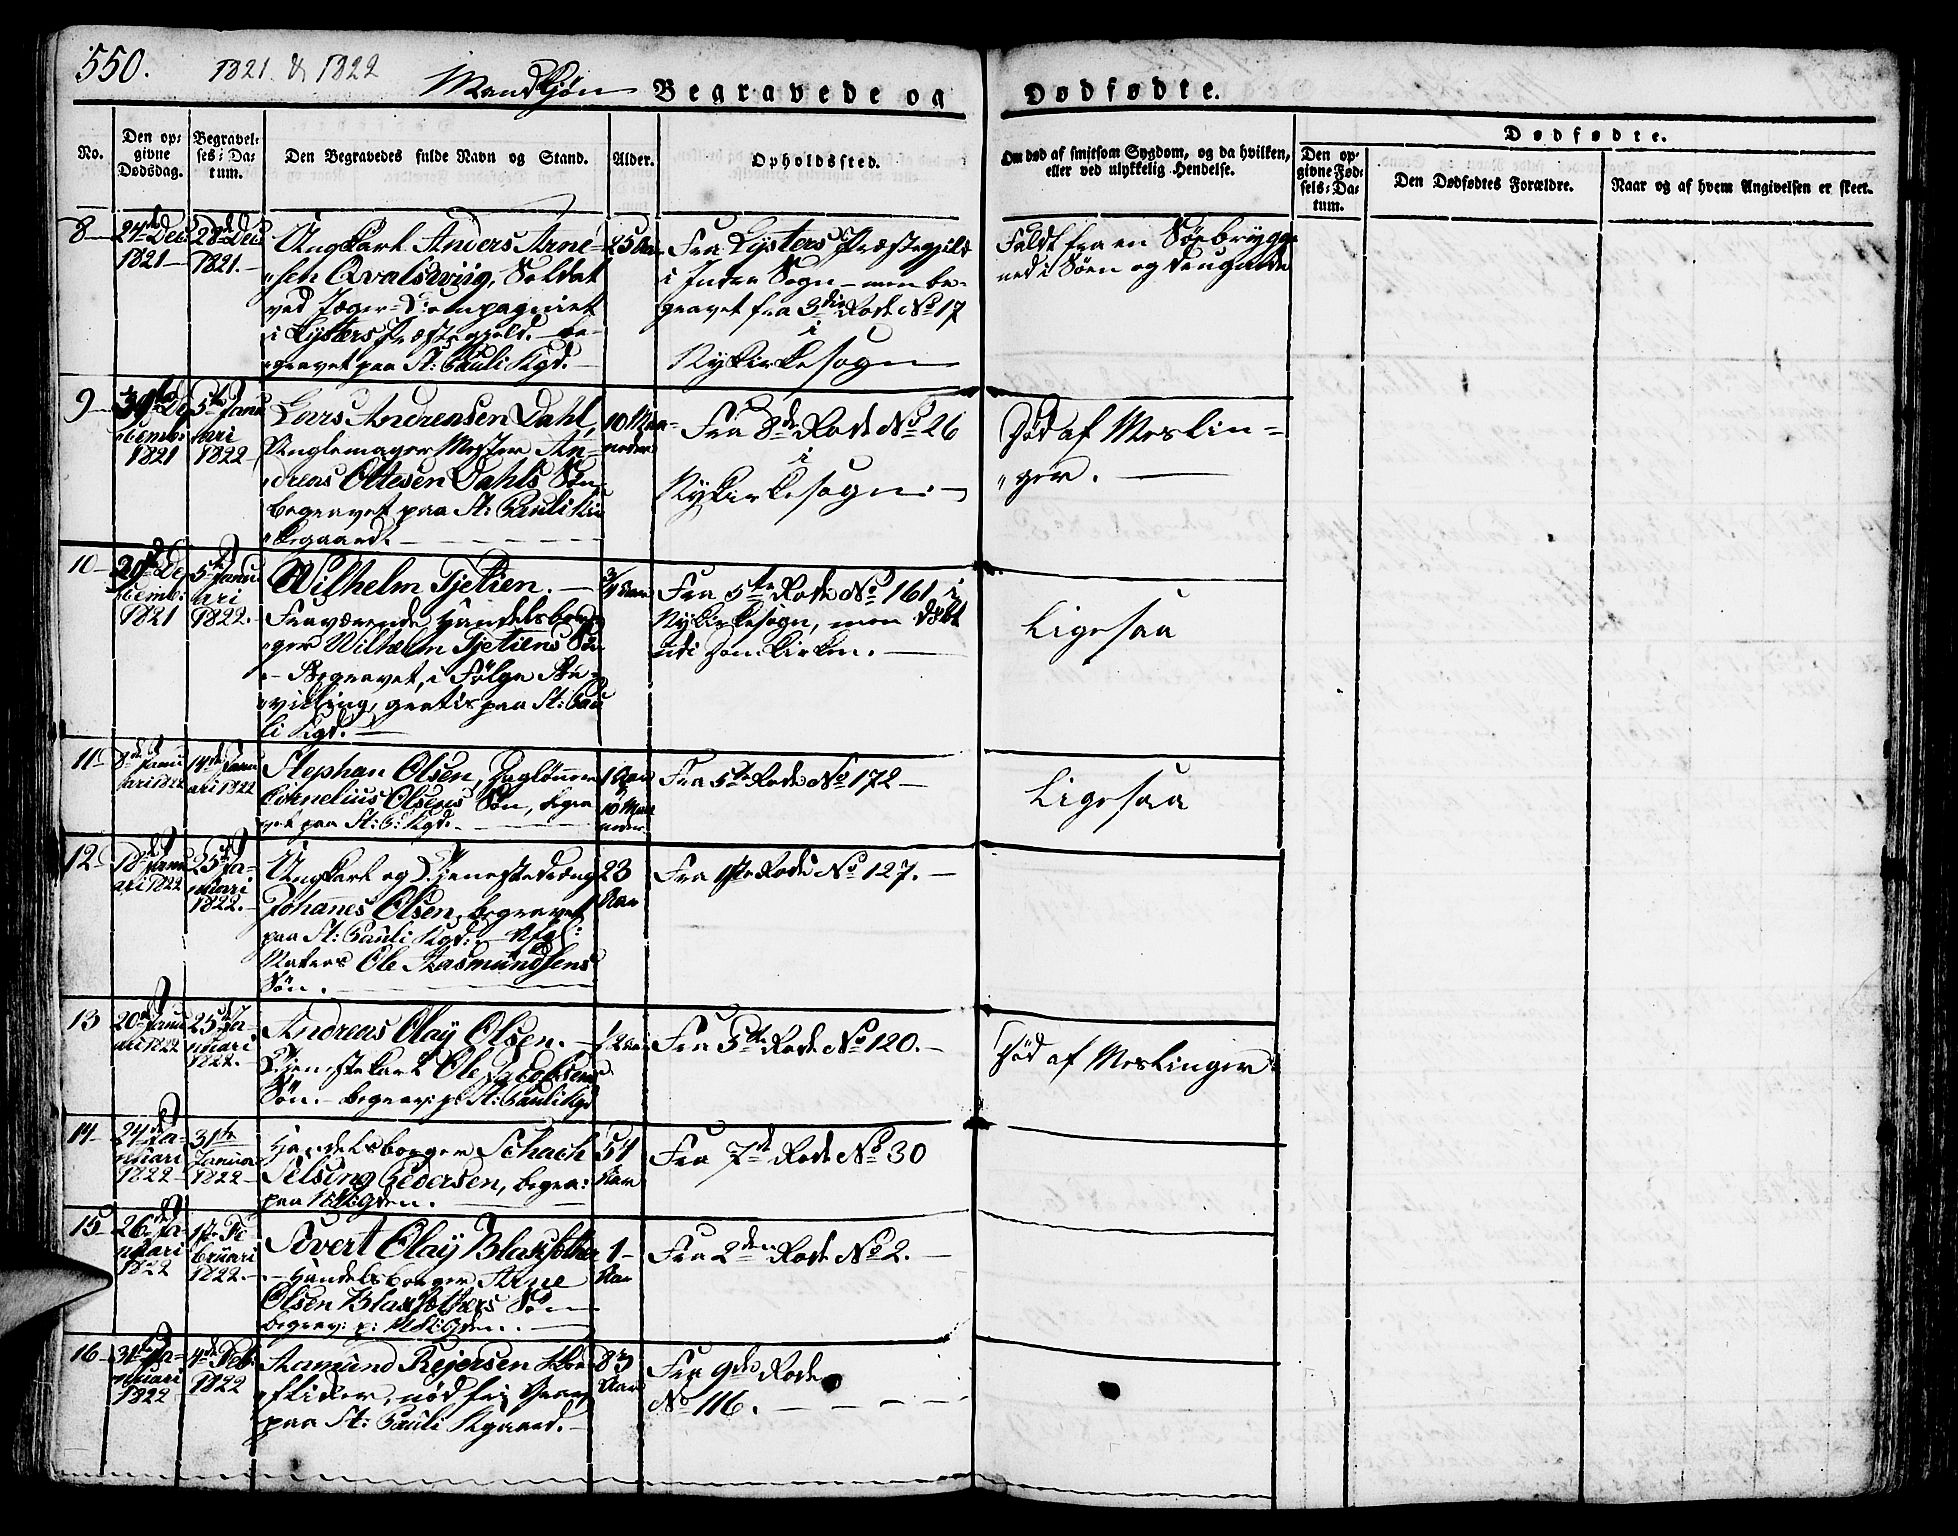 550.
1821 & 1822
Mandkjøn
Begravede og
Dødfødte.
No.
Den op-
givne
Dødsdag.
Begravel-
ses-Da-
tum.
Den Begravedes fulde Navn og Stand.
Alder.
Opholdssted.
Om død af smitsom Sygdom, og da hvilken,
eller ved ulykkelig Hendelse.
Dødfødte.
Den op-
givne Fød-
sels-Da-
tum.
Den Dødfødtes Forældre.
Naar og af hvem Angivelsen er skeet.
8
24de Dec
1821
28de Dec
1821.
Ungkarl Anders Arne-
sen Qvalsviig, Soldat
ved Jæger-Compagniet
i Lysters Præstegjeld. be-
gravet paa St: Pauli Kgd.
25 Aar
Fra Lysters Præstegield
i Indre Sogn - men be-
gravet fra 3die Rode No 17
i
Nykirkesogn
Faldt fra en Søebrygge
ned i Søen og
9
De
cemb:
1821
5te Janu
ari
1822
Lars Andreasen Dahl,
Mester An-
dreas Ottesen Dahls Søn
begravet paa St: Pauli Kir
kegaard.
10 Maa-
neder
Fra 8de Rode No 26
i
Nykirkesogn
Død af Meslin-
ger.
10
29de De
cemb:
1821
5te Janu
ari
1822.
Wilhelm Tjetien.
Fraværende Handelsbor
ger Wilhelm Tjetiens Søn
- Begravet, i Følge Be-
villing, gratis paa St: Pau
li Kgd.
3/4 Aar
Fra 5te Rode No 161 i
Nykirkesogn, men døbt
udi Domkirken.
Ligesaa
11
8de Janu
ari 1822
14de Janu
ari 1822
Stephan Olsen, Daglønner
Cornelius Olsens Søn, begra
vet paa St: P: Kgd.
1 Aar
10 Maa
neder
Fra 5te Rode No 172
Ligesaa
12
18de Janu
ari 1822
25de Ja-
nuari
1822.
Ungkarl og Tjenestedreng
Johanes Olsen, begravet
paa St: Pauli Kgd:
Ole Aasmundsens
Søn.
23
Aar
Fra 1ste Rode No 127.
13
20de Janu
ari 1822
25de Ja-
nuari
1822.
Andreas Olaÿ Olsen.
Tjenestekarl Ole Jacobsens
Søn. - begrav: p: St: Pauli Kgd
1/2 Aar
Fra 5te Rode No 120.
Død af Meslinger
14
24de Ja-
nuari
1822
31te
Januar
1822
Handelsborger Schach
Selsing Pedersen, begra:
paa
51
Aar
Fra 7de Rode No 30
15
26de Ja-
nuari
1822
1ste Fe
bruari
1822.
Sivert Olaÿ
- Handelsborger Arne
Olsen Søn
begrav: p:
1
Aar
Fra 2den Rode No 2.
16
31te Ja-
nuari
1822
4de Feb:
1822
Aamund Rejersen
paa St: Pauli Kgaard.
83
Aar
Fra 9de Rode
No 116.